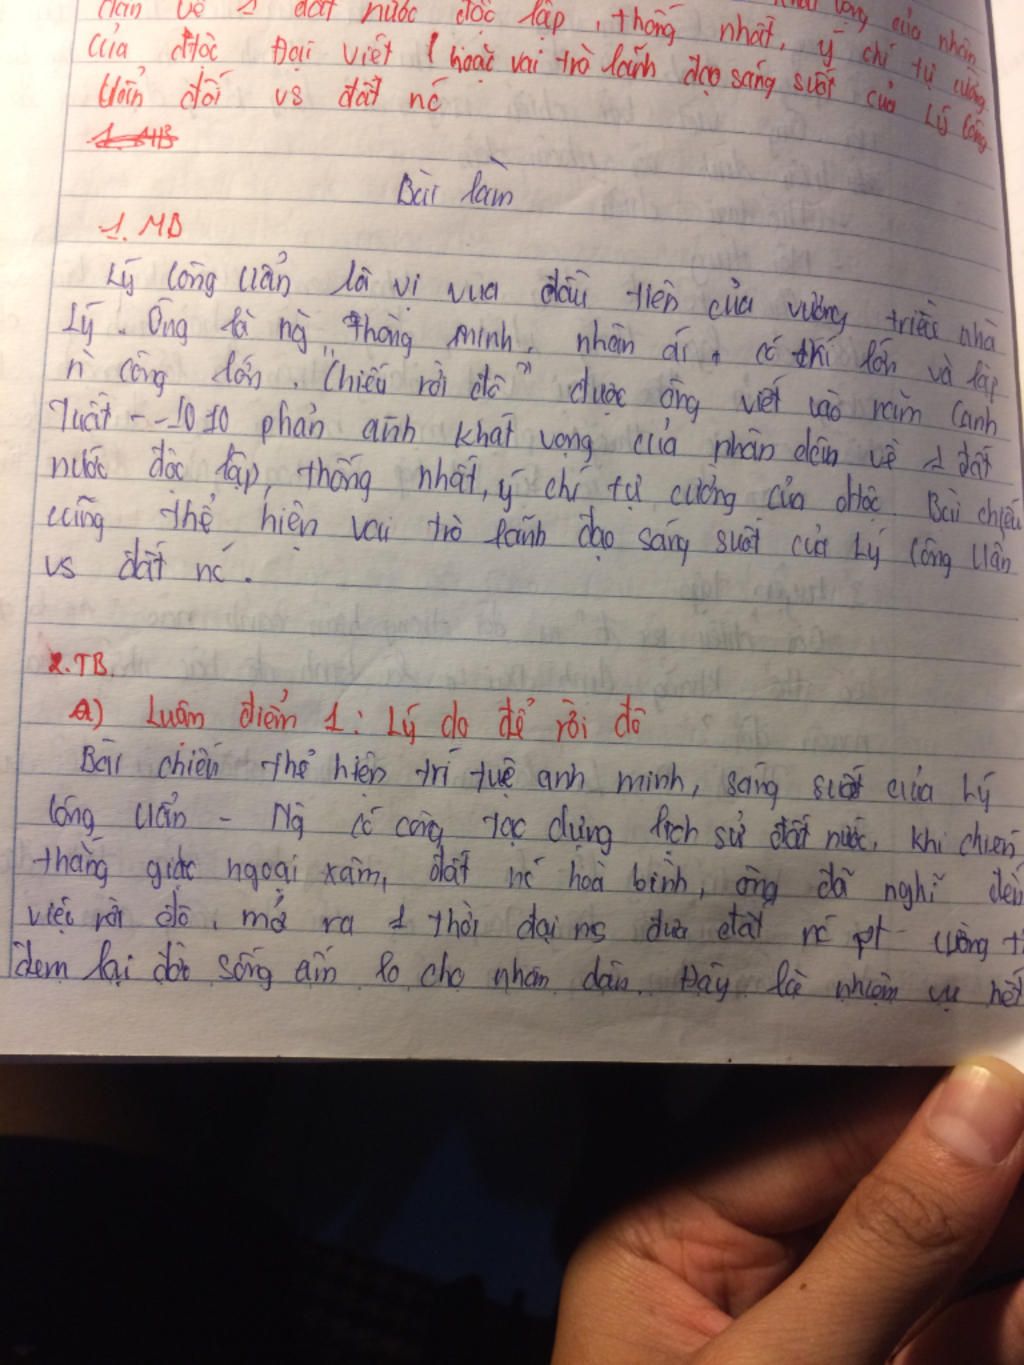 dân về 1 đất nước độc lập, thống nhất, ý chí tự cường
của dtộc Đại Việt ( hoặc vai trò lãnh đạo sáng suốt của Lý Công
Uẩn đối vs đất nc
Bài làm
1. MB
Lý Công Uẩn là vị vua đầu tiên của vương triều nhà
Lý. Ông là ng thông minh, nhân ái, có chí lớn và lập
n` công lớn. "Chiếu rời đô" được ông viết vào năm Canh
Tuất - 1010 phản ánh khát vọng của nhân dân về 1 đất
nước độc lập, thống nhất, ý chí tự cường của dtộc. Bài chiếu
cũng thể hiện vai trò lãnh đạo sáng suốt của Lý Công Uẩn
vs đất nc.
2. TB.
a) Luận điểm 1: Lý do để rời đô
Bài chiếu thể hiện trí tuệ anh minh, sáng suốt của Lý
Công Uẩn - Ng có công tạc dựng lịch sử đất nước, khi chiến
thắng giặc ngoại xâm, đất nc hoà bình, ông đã nghĩ đến
việc rời đô, mở ra 1 thời đại ms đưa đất nc pt cường
đem lại đời sống ấm lo cho nhân dân. Đây là nhiệm vụ hết